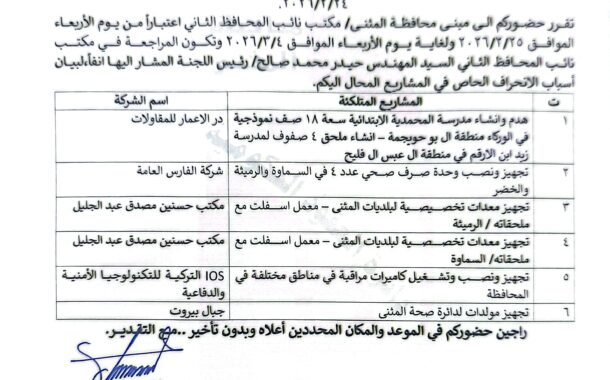 ٢٠٢٦/٢/٢٤.
تقرر حضوركم الى مبنى محافظة المثنى/ مكتب نائب المحافظ الثاني اعتباراً من يوم الأربعاء
الموافق ٢٠٢٦/٢/٢٥ ولغاية يوم الأربعاء الموافق ٢٠٢٦/٣/٤ وتكون المراجعة في مكتب
نائب المحافظ الثاني السيد المهندس حيدر محمد صالح/ رئيس اللجنة المشار اليها انفاً،لبيان
أسباب الانحراف الحاصل في المشاريع المحال اليكم.
ت المشاريع المتلكئة اسم الشركة
١ هدم وانشاء مدرسة المحمدية الابتدائية سعة ١٨ صف نموذجية در الاعمار للمقاولات
في الوركاء منطقة ال بو حويجمة – انشاء ملحق ٤ صفوف لمدرسة
زيد ابن الارقم في منطقة ال عبس ال فليح
٢ تجهيز ونصب وحدة صرف صحي عدد ٤ في السماوة والرميثة شركة الفارس العامة
والخضر
٣ تجهيز معدات تخصيصية لبلديات المثنى – معمل اسفلت مع مكتب حسنين مصدق عبد الجليل
ملحقاته / الرميثة
٤ تجهيز معدات تخصصية لبلديات المثنى – معمل اسفلت مع مكتب حسنين مصدق عبد الجليل
ملحقاته/ السماوة
٥ تجهيز ونصب وتشغيل كاميرات مراقبة في مناطق مختلفة في IOS التركية للتكنولوجيا الأمنية
المحافظة والدفاعية
٦ تجهيز مولدات لدائرة صحة المثنى جبال بيروت
راجين حضوركم في الموعد والمكان المحددين أعلاه وبدون تأخير ..مع التقدير.